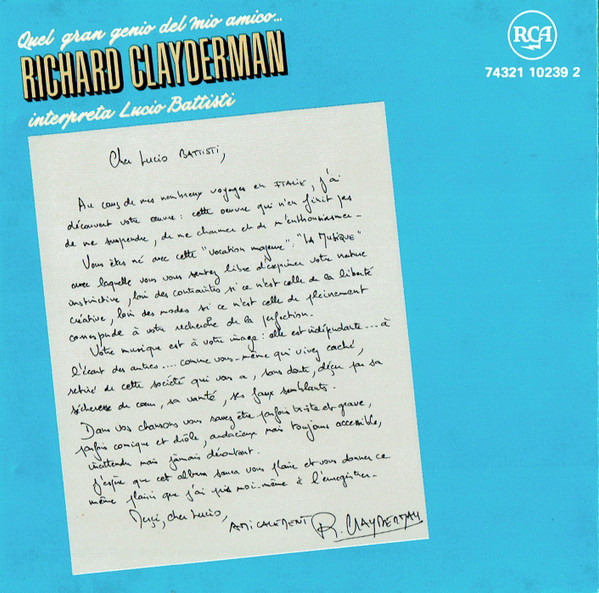 Quel gran genio del mio amico...
RICHARD CLAYDERMAN
interpreta Lucio Battisti
RCA
74321 10239 2
Cher Lucio BATTISTI,
Au cours de mes nombreux voyages en ITALIE, j'ai
découvert votre œuvre : cette œuvre qui n'en finit pas
de me surprendre, de me charmer et de m'enthousiasmer.
Vous êtes né avec cette "vocation majeure" : "LA MUSIQUE"
avec laquelle vous vous sentez libre d'exprimer votre nature
instinctive, loin des contraintes si ce n'est celle de la liberté
créative, loin des modes si ce n'est celle de pleinement
correspondre à votre recherche de la perfection.
Votre musique est à votre image : elle est indépendante ... à
l'écart des autres .... comme vous-même qui vivez caché,
retiré de cette société qui vous a, sans doute, déçu par sa
sécheresse du cœur, sa vanité, ses faux semblants.
Dans vos chansons vous savez être parfois triste et grave,
parfois comique et drôle, audacieux mais toujours accessible,
inattendu mais jamais déroutant.
J'espère que cet album saura vous plaire et vous donner ce
même plaisir que j'ai pris moi-même à l'enregistrer.
Merci, cher Lucio,
AMICALEMENT R. CLAYDERMAN